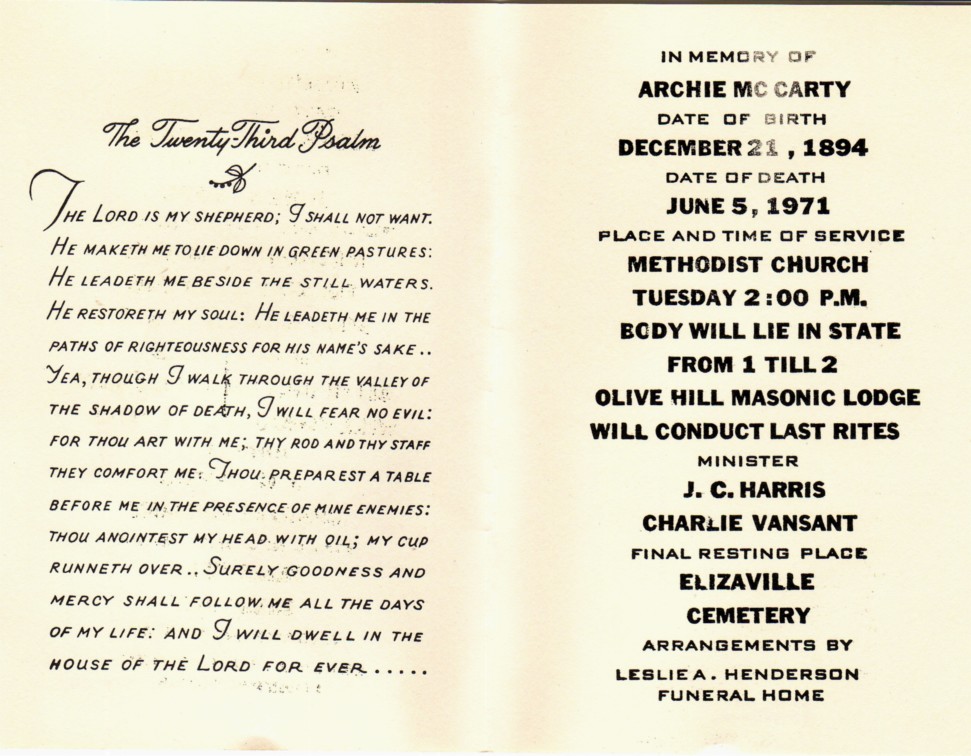 The Twenty-Third Psalm
The Lord is my shepherd; I shall not want.
He maketh me to lie down in green pastures:
He leadeth me beside the still waters.
He restoreth my soul: He leadeth me in the
paths of righteousness for his name's sake..
Yea, though I walk through the valley of
the shadow of death, I will fear no evil:
for thou art with me; thy rod and thy staff
they comfort me: Thou preparest a table
before me in the presence of mine enemies:
thou anointest my head with oil; my cup
runneth over.. Surely goodness and
mercy shall follow me all the days
of my life: and I will dwell in the
house of the Lord for ever.....
IN MEMORY OF
ARCHIE MC CARTY
DATE OF BIRTH
DECEMBER 21, 1894
DATE OF DEATH
JUNE 5, 1971
PLACE AND TIME OF SERVICE
METHODIST CHURCH
TUESDAY 2:00 P.M.
BODY WILL LIE IN STATE
FROM 1 TILL 2
OLIVE HILL MASONIC LODGE
WILL CONDUCT LAST RITES
MINISTER
J. C. HARRIS
CHARLIE VANSANT
FINAL RESTING PLACE
ELIZAVILLE
CEMETERY
ARRANGEMENTS BY
LESLIE A. HENDERSON
FUNERAL HOME